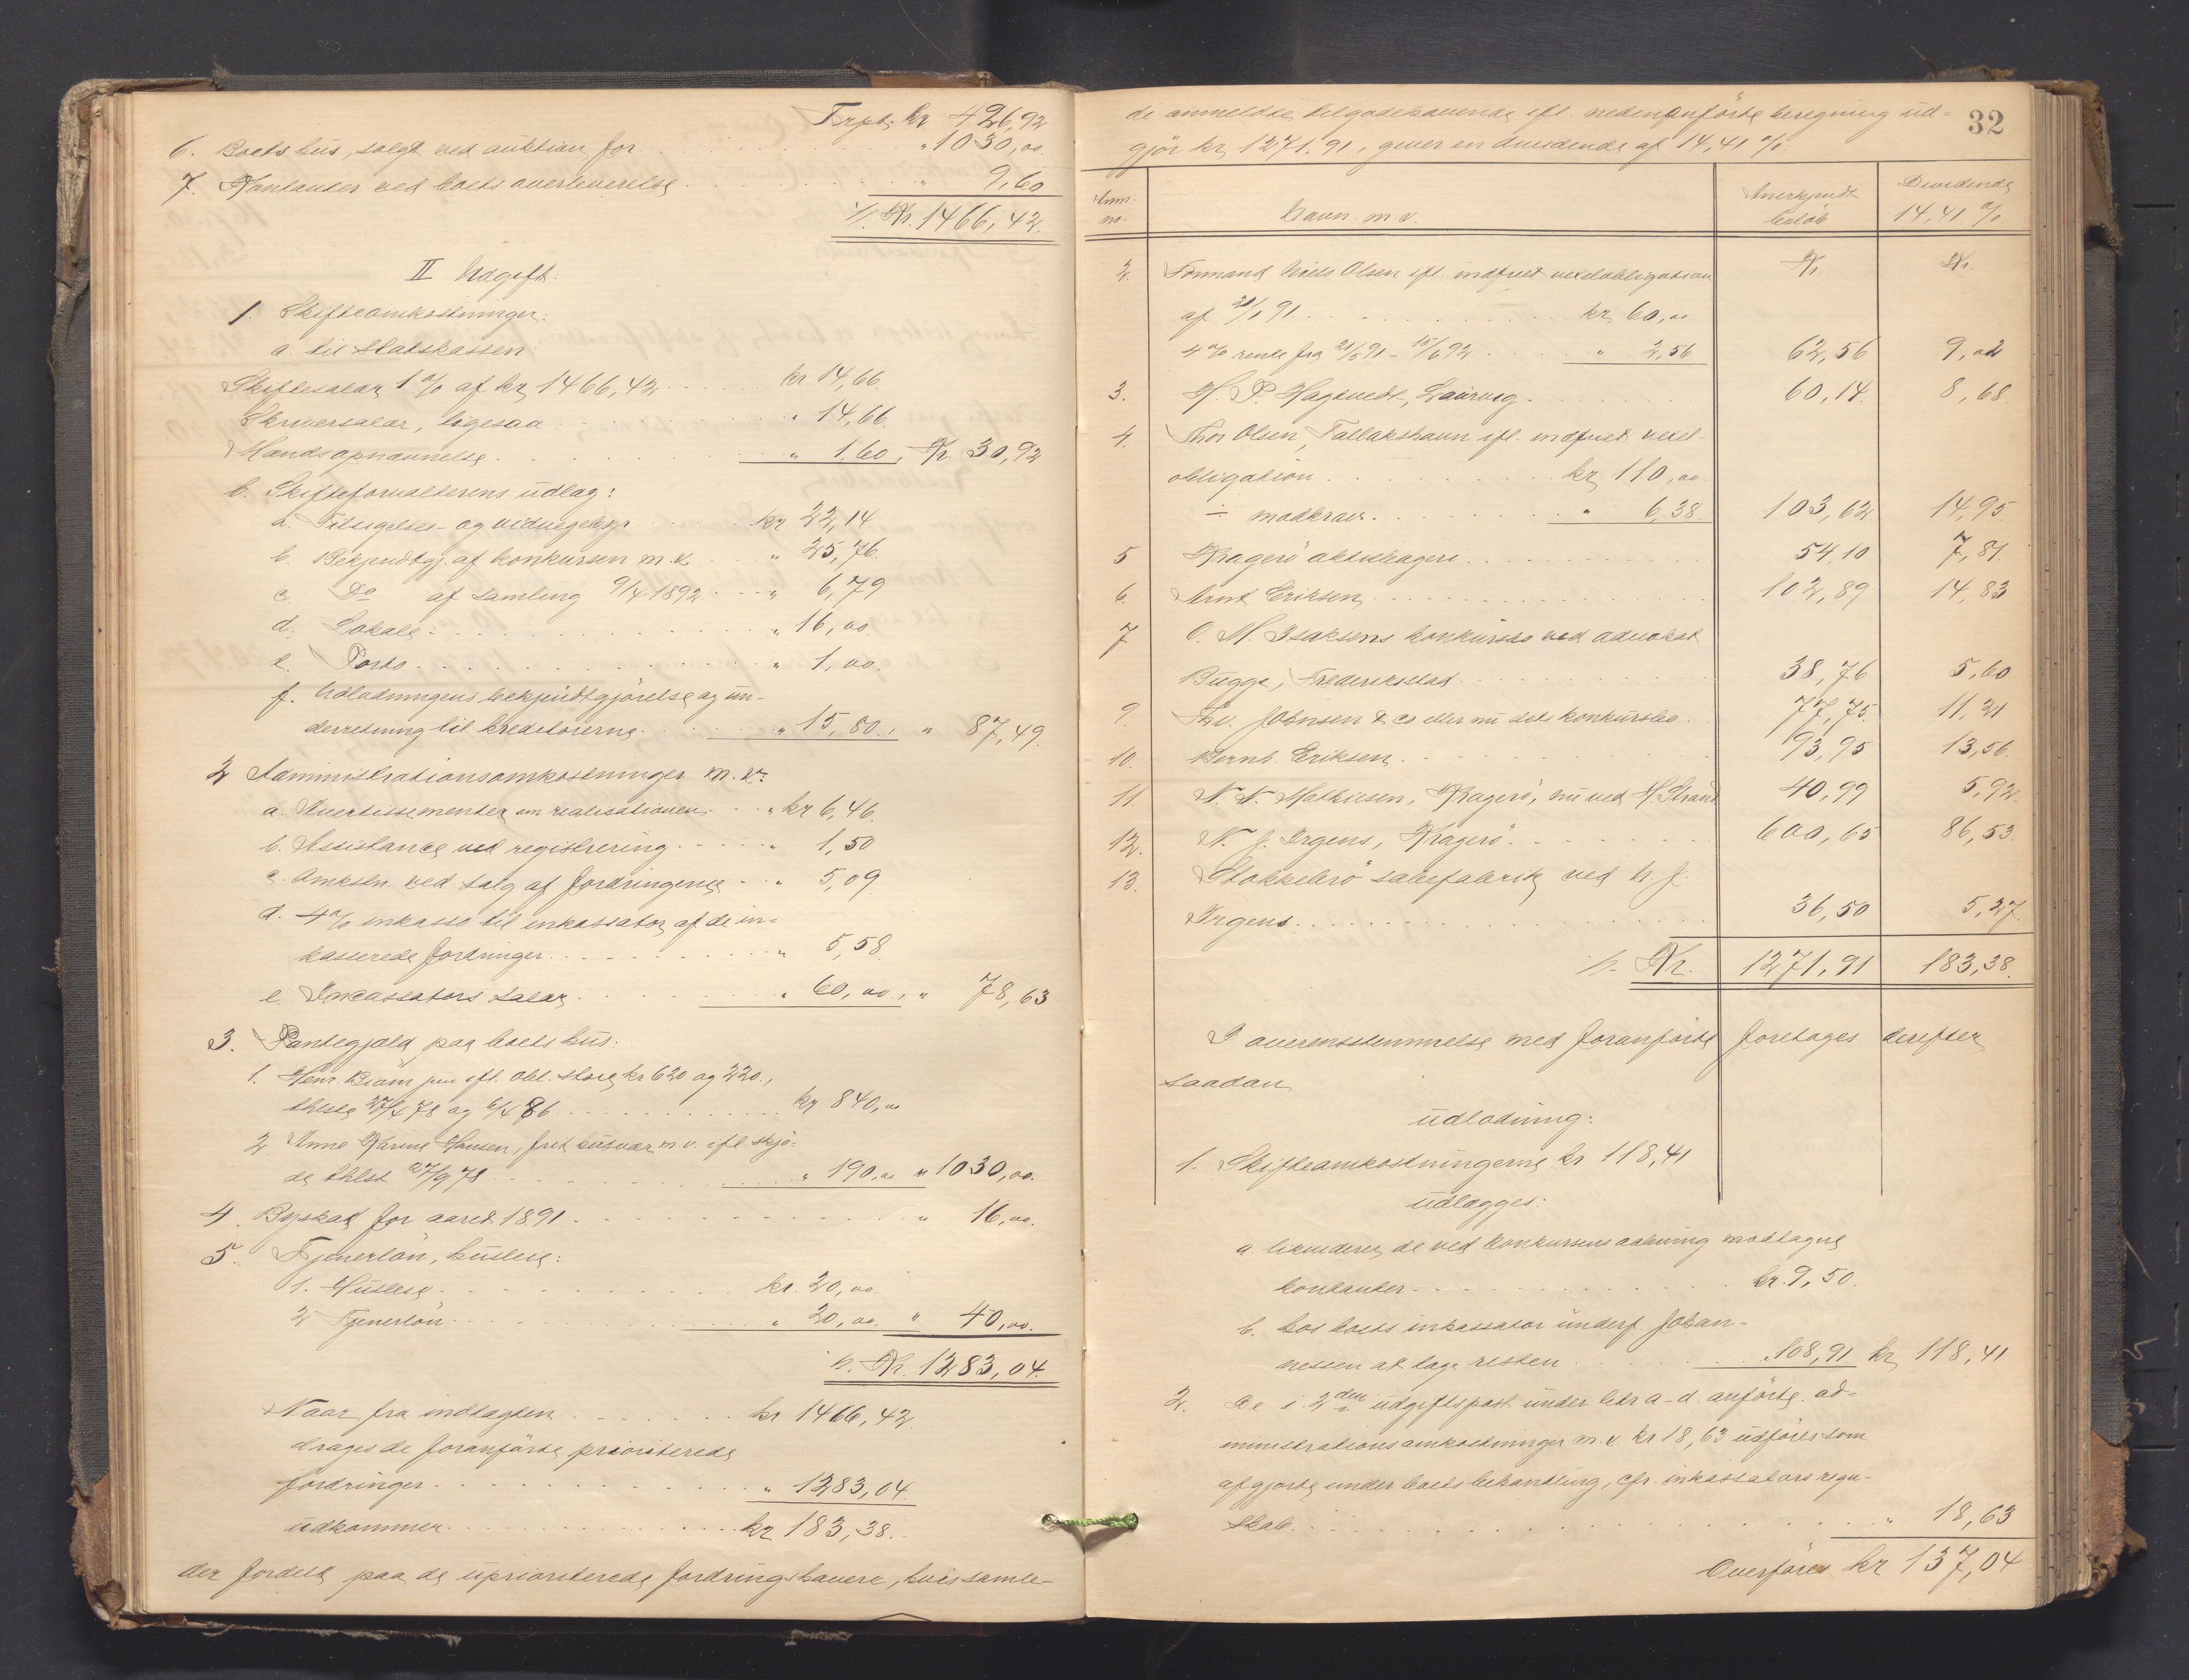 Trpt. kr 426,92
6. Boets hus, solgt ved auktion for . . . " 1030,00
7. Kontanter ved boets overleverelse . . . " 9,60
Kr. 1466,42.
II Udgift:
1. Skifteomkostninger:
a. til Statskassen
Skiftesalær 1 % af kr 1466,42 . . . kr. 14,66.
Skriversalær, ligesaa . . . " 14,66.
Mandsopnævnelse . . . " 1,60, Kr. 30,92
b. Skifteforvalterens udlag:
a. Tilsigelses- og vidnegebyr . . . kr 22,14.
b. Bekjendtgj. af konkursen m.v. . . . " 25,76.
c. Do af samling 9/4 1892 . . . " 6,79
d. Lokale . . . " 16,00.
e. Porto . . . " 1,00.
f. Udlodningens bekjendtgjørelse og un-
derretning til kreditorerne . . . " 15,80., " 87,49.
2 Administrationsomkostninger m.v.:
a. Avertissementer om realisationen . . . " kr 6,46.
b. Assistance ved registrering . . . " 1,50
c. Omkstn. ved salg af fordringerne . . . " 5,09
d. 4 % inkasso til inkassator af de in-
kasserede fordringer . . . " 5,58.
e. Incassators salær . . . " 60,00, " 78,63
3. Pantegjæld paa boets hus:
1. Henr. Biørn jun efl. obl. store kr 620 og 220.,
thlste 27/4 78 og 6/4 86 . . . kr 840,00
2 Anne Karine Hansen, frit husvær m.v. efl skjø-
de thlst 27/9 78 . . . " 190,00 " 1030,00.
4. Byskat for aaret 1891 . . . " 16,00.
5. Tjenerløn, husleie:
1. Husleie . . . kr. 20,00.
2 Tjenerløn . . . " 20,00. " 40,00.
Kr. 1283,04.
Naar fra indtægten . . . kr 1466,42.
drages de foranførte prioriterede
fordringer . . . " 1283,04.
udkommer . . . kr 183,38.
der fordelt paa de uprioriterede fordringshavere, hvis samle-
32
de anmeldte tilgodehavende efl. nedenanførte beregning ud-
gjør kr 1271,91, giver en dividende af 14,41 %.
Anm. no. Navn m.v. Anerkjendt beløb Dividende 14,41 %
Kr. Kr.
2. Formand Niels Olsen efl. indfriet vexelobligation
af 21/1 91 . . . kr 60,00
4 % rente fra 21/5 91 - 15/6 92 . . . " 2,56 62,56 9,02
3. H. P. Hagevedt, Laurvig . . . 60,14. 8,68
4. Thor Olsen, Tallakshavn efl. indfriet vexel-
obligation . . . kr 110,00
÷ modkrav . . . " 6,38. 103,62 14,95.
5 Kragerø aktiebageri . . . 54,10 7,81.
6. Arnt Eriksen . . . 102,89 14,83
7 O. M. Isaksens konkursbo ved advokat
Bugge, Frederikstad . . . 38,76 5,60
9. Thv. Johnsen & co eller nu dets konkursbo . . 77,75. 11,21
10. Bernh. Eriksen . . . 93,95 13,56.
11. N. N. Mathiesen, Kragerø, nu ved H Strand 40,99 5,92.
12. N. J. Irgens, Kragerø . . . 600,65 86,53.
13. Stokkebrø sæbefabrik ved N. J.
Irgens . . . 36,50 5,27.
Kr. 1271,91 183,38.
I overensstemmelse med foranførte foretages derefter
saadan
udlodning:
1. Skifteomkostningerne kr 118,41
udlægges:
a. likviderer de ved konkursens aabning modtagne
kontanter . . . kr. 9,50.
b. hos boets inkassator underf. Johan-
nessen at tage resten . . . " 108,91 kr 118,41
2. De i 2den udgiftspost under litr a-d. anførte ad-
ministrationsomkostninger m.v. kr 18,63 udføres som
afgjorte under boets behandling, cfr. inkassators regn-
skab . . . " 18,63
Overføres kr 137,04